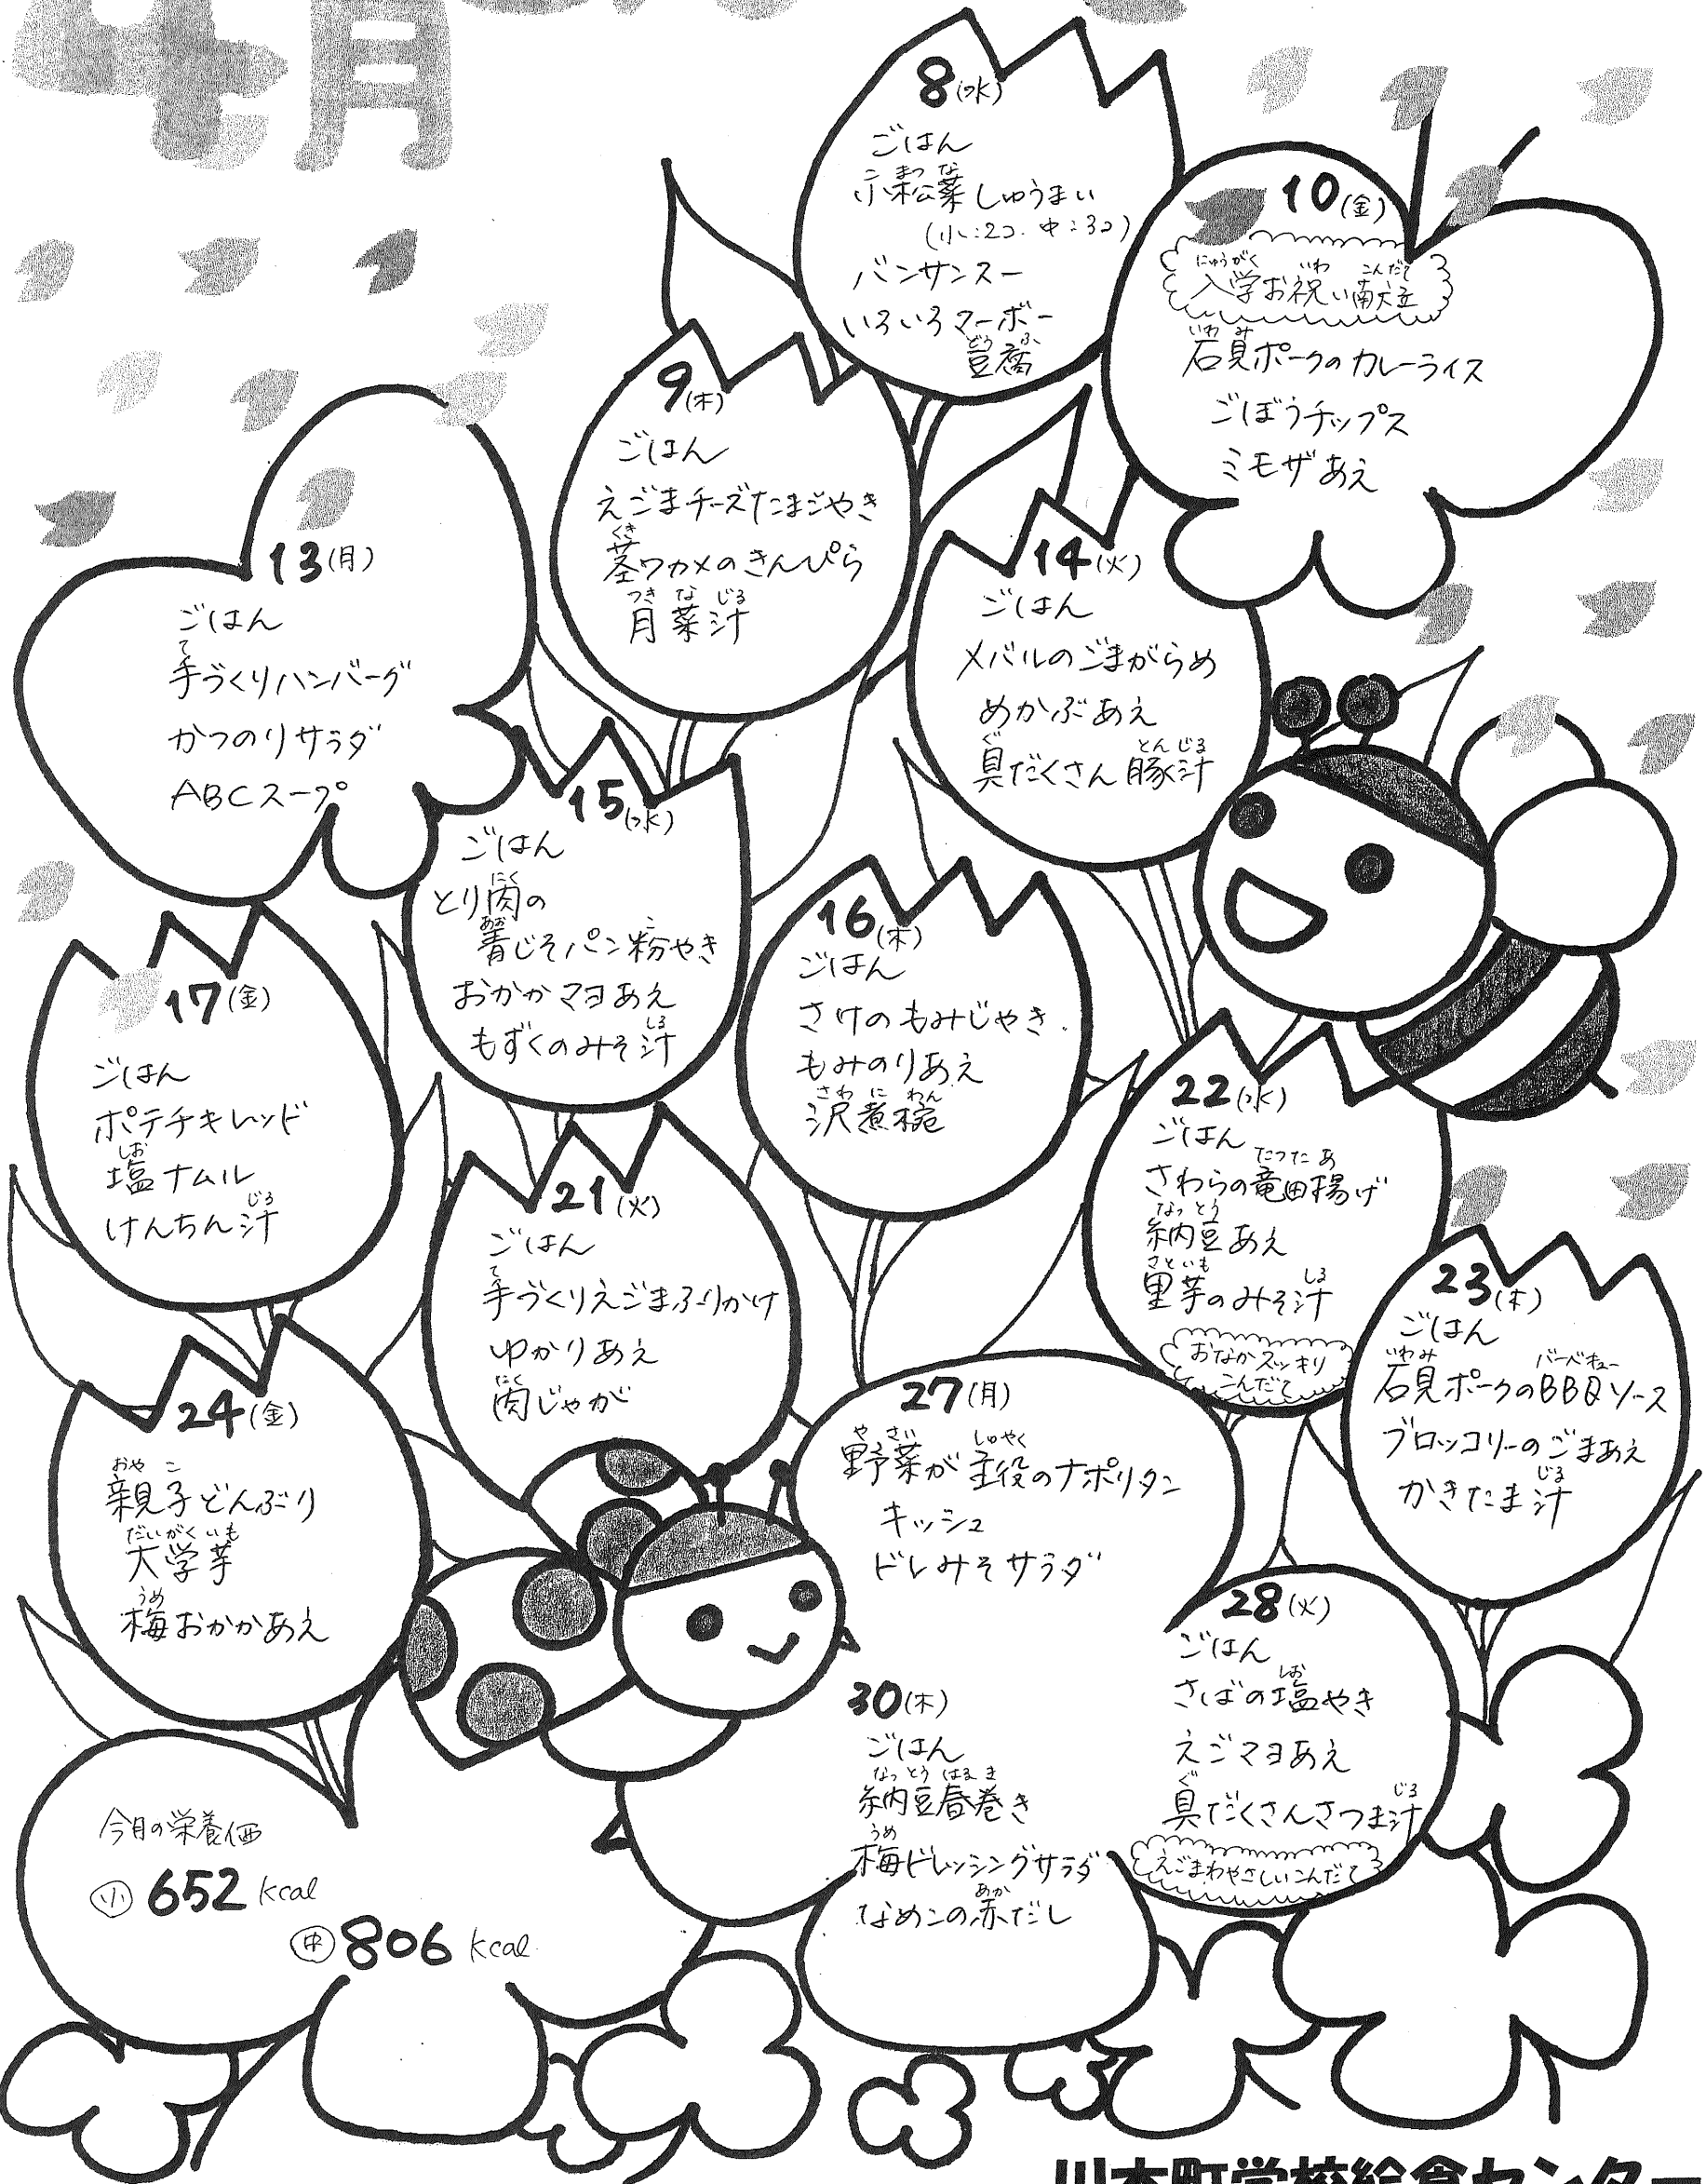 4月
8(水)
ごはん
小松菜しゅうまい
(小:2コ.中:3コ)
バンサンスー
いろいろマーボー
豆腐
9(木)
ごはん
えごまチーズたまごやき
茎ワカメのきんぴら
月菜汁
10(金)
入学お祝い献立
石見ポークのカレーライス
ごぼうチップス
ミモザあえ
13(月)
ごはん
手づくりハンバーグ
かつのりサラダ
ABCスープ
14(火)
ごはん
メバルのごまがらめ
めかぶあえ
具だくさん豚汁
15(水)
ごはん
とり肉の
青じそパン粉やき
おかかマヨあえ
もずくのみそ汁
16(木)
ごはん
さけのもみじやき
もみのりあえ
沢煮椀
17(金)
ごはん
ポテチキレッド
塩ナムル
けんちん汁
21(火)
ごはん
手づくりえごまふりかけ
ゆかりあえ
肉じゃが
22(水)
ごはん
さわらの竜田揚げ
納豆あえ
里芋のみそ汁
おなかスッキリ
こんだて
23(木)
ごはん
石見ポークのBBQソース
ブロッコリーのごまあえ
かきたま汁
24(金)
親子どんぶり
大学芋
梅おかかあえ
27(月)
野菜が主役のナポリタン
キッシュ
ドレみそサラダ
28(火)
ごはん
さばの塩やき
えごマヨあえ
具だくさんさつま汁
えごまわやさしいこんだて
30(木)
ごはん
納豆春巻き
梅ドレッシングサラダ
なめこの赤だし
今月の栄養価
小 652 kcal
中 806 kcal
川本町学校給食センター